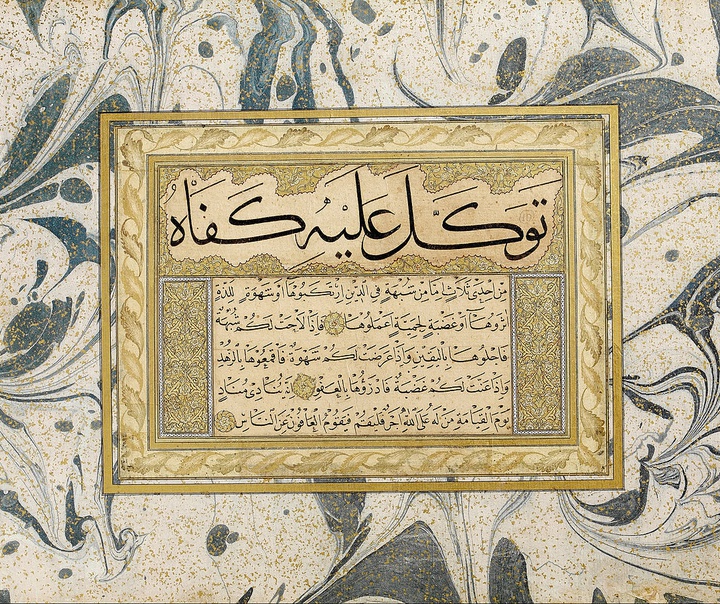 تَوَكَّلَ عَلَيْهِ كَفَاهُ
مِنْ إِحْدَى ثَلَاثٍ إِمَّا مِنْ شُبْهَةٍ فِي الدِّينِ ارْتَكَبُوهَا أَوْ شَهْوَةٍ لِلَذَّةٍ
آثَرُوهَا أَوْ غَضْبَةٍ لِحَمِيَّةٍ أَعْمَلُوهَا فَإِذَا لَاحَتْ لَكُمْ شُبْهَةٌ
فَاجْلُوهَا بِالْيَقِينِ وَإِذَا عَرَضَتْ لَكُمْ شَهْوَةٌ فَاقْمَعُوهَا بِالزُّهْدِ
وَإِذَا عَنَّتْ لَكُمْ غَضْبَةٌ فَادْرَؤُهَا بِالْعَفْوِ إِنَّهُ يُنَادِي مُنَادٍ
يَوْمَ الْقِيَامَةِ مَنْ لَهُ عَلَى اللَّهِ أَجْرٌ فَلْيَقُمْ فَيَقُومُ الْعَافُونَ عَنِ النَّاسِ